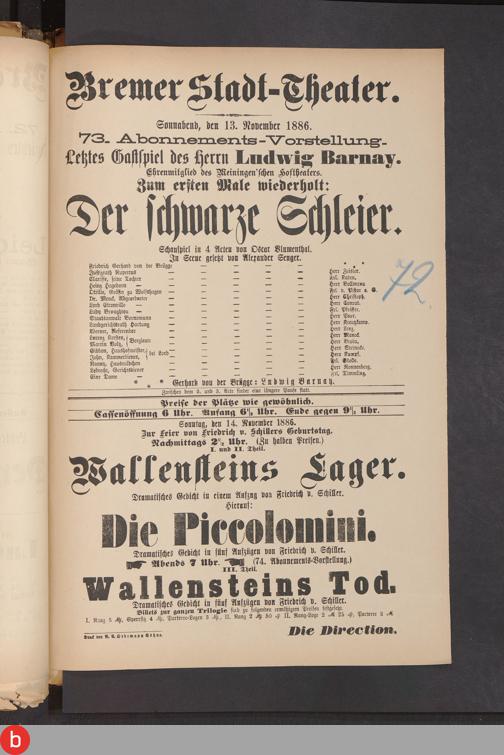 Bremer Stadt-Theater.
Sonnabend, den 13. November 1886.
73. Abonnements-Vorstellung.
Letztes Gastspiel des Herrn Ludwig Barnay.
Ehrenmitglied des Meiningen'schen Hoftheaters.
Zum ersten Male wiederholt:
Der schwarze Schleier.
Schauspiel in 4 Acten von Oscar Blumenthal.
In Scene gesetzt von Alexander Senger.
Friedrich Gerhard von der Brügge — — — — — * * *
Justizrath Rupertus — — — — — Herr Zeisler.
Clarisse, seine Tochter — — — — — Frl. Raden.
Heinz Hagedorn — — — — — Herr
Ottilie, Gräfin zu Wolfshagen — — — — — Frl. v. Pistor a. G.
Dr. Menck, Abgeordneter — — — — — Herr Christoph.
Lord — — — — — Herr Conrad.
Lady Broughton — — — — — Frl. Pfeiffer.
Staatsanwalt Bornemann — — — — — Herr
Landgerichtsrath Hartung — — — — — Herr
Werner, Referendar — — — — — Herr
Lorenz — — — — — Herr Manck.
Martin — — — — — Herr
Gibson, Haushofmeister — — — — — Herr Steinecke.
John, Kammerdiener, bei Lord — — — — — Herr Rumpf.
Nanny, — — — — — Frl.
Gerichtsdiener — — — — — Herr Ronnenberg.
Eine Dame — — — — — Frl. Timmling.
* * * Gerhard von der Brügge: Ludwig Barnay.
Zwischen dem 2. und 3. Acte findet eine längere Pause statt.
Preise der Plätze wie gewöhnlich.
Cassenöffnung 6 Uhr. Anfang 6½ Uhr. Ende gegen 9½ Uhr.
72
Sonntag, den 14. November 1886.
Zur Feier von Friedrich v. Schillers Geburtstag.
Nachmittags 2½ Uhr. (Zu halben Preisen.)
I. und II. Theil.
Wallensteins Lager.
Dramatisches Gedicht in einem Aufzug von Friedrich v. Schiller.
Hierauf:
Die Piccolomini.
Dramatisches Gedicht in fünf Aufzügen von Friedrich v. Schiller.
Abends 7 Uhr. (74. Abonnements-Vorstellung.)
III. Theil.
Wallensteins Tod.
Dramatisches Gedicht in fünf Aufzügen von Friedrich v. Schiller.
Billets zur ganzen Trilogie sind zu folgenden ermäßigten Preisen festgesetzt:
I. Rang 5 ℳ, Sperrsitz 4 ℳ, Parterre-Logen 3 ℳ, II. Rang 2 ℳ 50 ₰ II. Rang-Loge 2 ℳ 25 ₰, Parterre 2 ℳ
Die Direction.
b